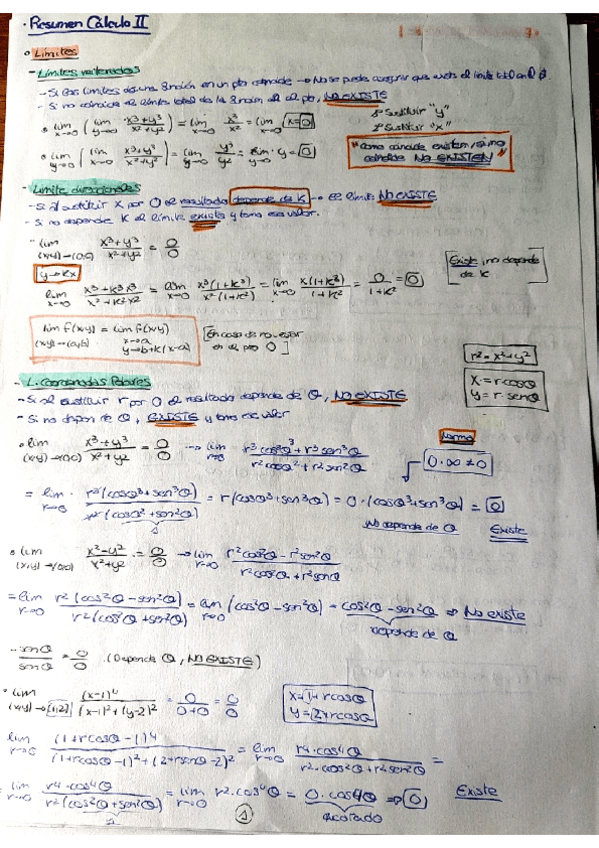 · Resumen Cálculo II
• Límites
- Límites reiterados
- Si los límites de una función en un pto coinciden → No se puede asegurar que exista el límite total en el
- Si no coincide el límite total de la función en el pto, NO EXISTE
• lim x→0 ( lim y→0 x³+y³ / x²+y² ) = lim x→0 x³/x² = lim x→0 x=0
1º Sustituir "y"
2º Sustituir "x"
• lim y→0 ( lim x→0 x³+y³ / x²+y² ) = lim y→0 y³/y² = lim y→0 y = 0
"Como coincide existen, si no coincide NO EXISTEN"
- Límite direccionales
- Si al sustituir x por 0 el resultado depende de K → el límite NO EXISTE
- Si no depende K el límite existe y toma ese valor.
lim (x,y)→(0,0) x³+y³ / x²+y² = 0/0
y→Kx
lim x→0 x³+K³x³ / x²+K²x² = lim x→0 x³(1+K³) / x²(1+K²) = lim x→0 x(1+K³) / 1+K² = 0 / 1+K² = 0
[Existe, no depende de K]
lim f(x,y) = lim f(x,y)
(x,y)→(a,b) x→a y→b+K(x-a)
[En caso de no estar en el pto 0]
r² = x²+y²
x = r cosθ
y = r senθ
- L. Coordenadas Polares
- Si al sustituir r por 0 el resultado depende de θ, NO EXISTE
- Si no depende θ, EXISTE y toma ese valor
• lim (x,y)→(0,0) x³+y³ / x²+y² = 0/0 → lim r→0 r³cosθ³+r³sen³θ / r²cosθ²+r²sen²θ
Norma
0·∞ ≠ 0
= lim r→0 r³(cosθ³+sen³θ) / r²(cosθ²+sen²θ) = r(cosθ³+sen³θ) = 0·(cosθ³+sen³θ) = 0
1
No depende de θ Existe
• lim (x,y)→(0,0) x²-y² / x²+y² = 0/0 → lim r→0 r²cos²θ - r²sen²θ / r²cos²θ + r²senθ
= lim r→0 r²(cos²θ - sen²θ) / r²(cos²θ+sen²θ) = lim r→0 (cos²θ - sen²θ) = cos²θ - sen²θ ⇒ No existe
depende de θ
senθ / senθ = 0/0 (Depende θ, NO EXISTE)
• lim (x,y)→(1,2) (x-1)⁴ / (x-1)²+(y-2)² = 0 / 0+0 = 0/0
x=1+rcosθ
y=2+rcosθ
lim r→0 (1+rcosθ-1)⁴ / (1+rcosθ-1)²+(2+rsenθ-2)² = lim r→0 r⁴·cos⁴θ / r²·cos²θ+r²sen²θ =
lim r→0 r⁴·cos⁴θ / r²(cos²θ+sen²θ) = lim r→0 r²·cos⁴θ = 0·cos⁴θ ⇒ 0 Existe
1
acotado
1